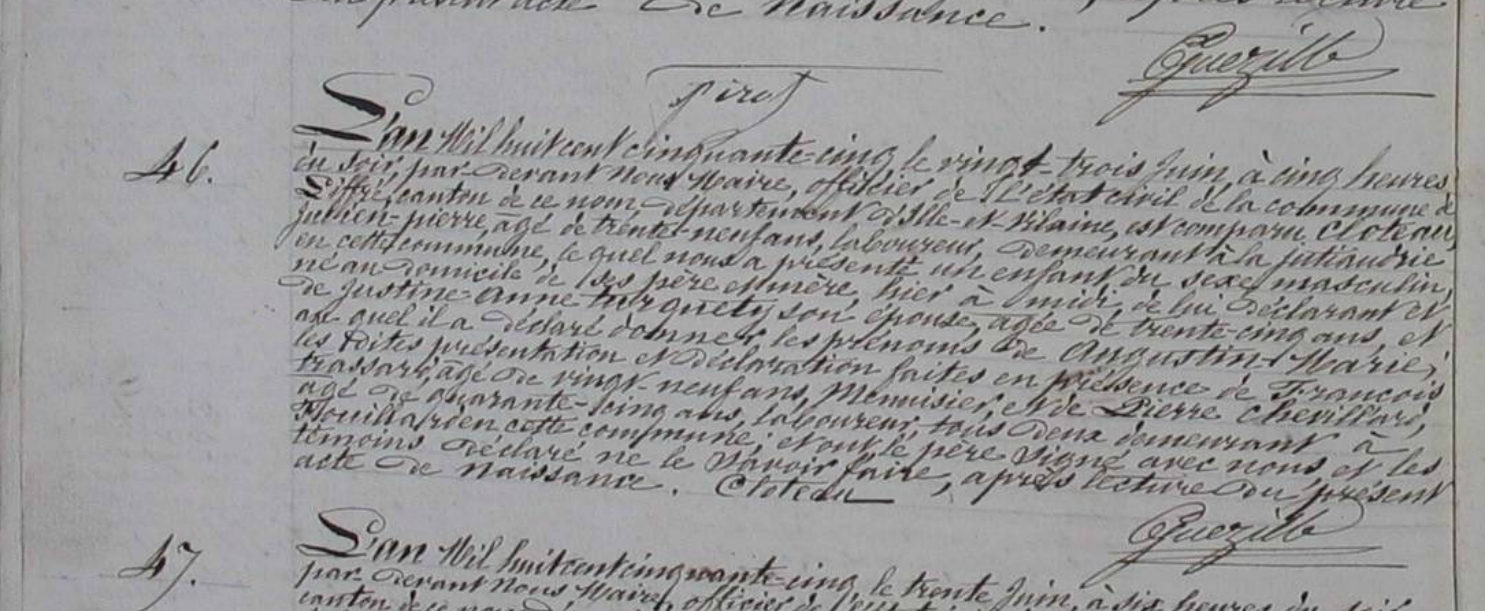 présent acte de naissance. lecture
Guezille
pirot
46.
L'an Mil huit cent cinquante-cinq le vingt-trois Juin, à cinq heures
du soir, par-devant Nous Maire, officier de l'état civil de la commune de
Liffré, canton de ce nom, département d'Ille-et-Vilaine, est comparu Cloteau
Julien-pierre, âgé de trente-neuf ans, laboureur, demeurant à la
en cette commune, le quel nous a présenté un enfant du sexe masculin,
né au domicile de ses père et mère, hier à midi, de lui déclarant et
de Justine-Anne son épouse, agée de trente-cinq ans, et
au quel il a déclaré donner les prénoms de Augustin-Marie;
les dites présentation et déclaration faites en présence de François
trassard, âgé de vingt-neuf ans, Menuisier, et de Pierre Chevillard,
agé de quarante-cinq ans, laboureur, tous deux demeurant à
Mouillard en cette commune; et ont le père signé avec nous et les
témoins déclaré ne le savoir faire, après lecture du présent
acte de naissance. Cloteau
Guezille
47.
L'an Mil huit cent cinquante-cinq, le trente Juin, à six heures du soir
par-devant Nous Maire, officier de l'état
canton de ce nom